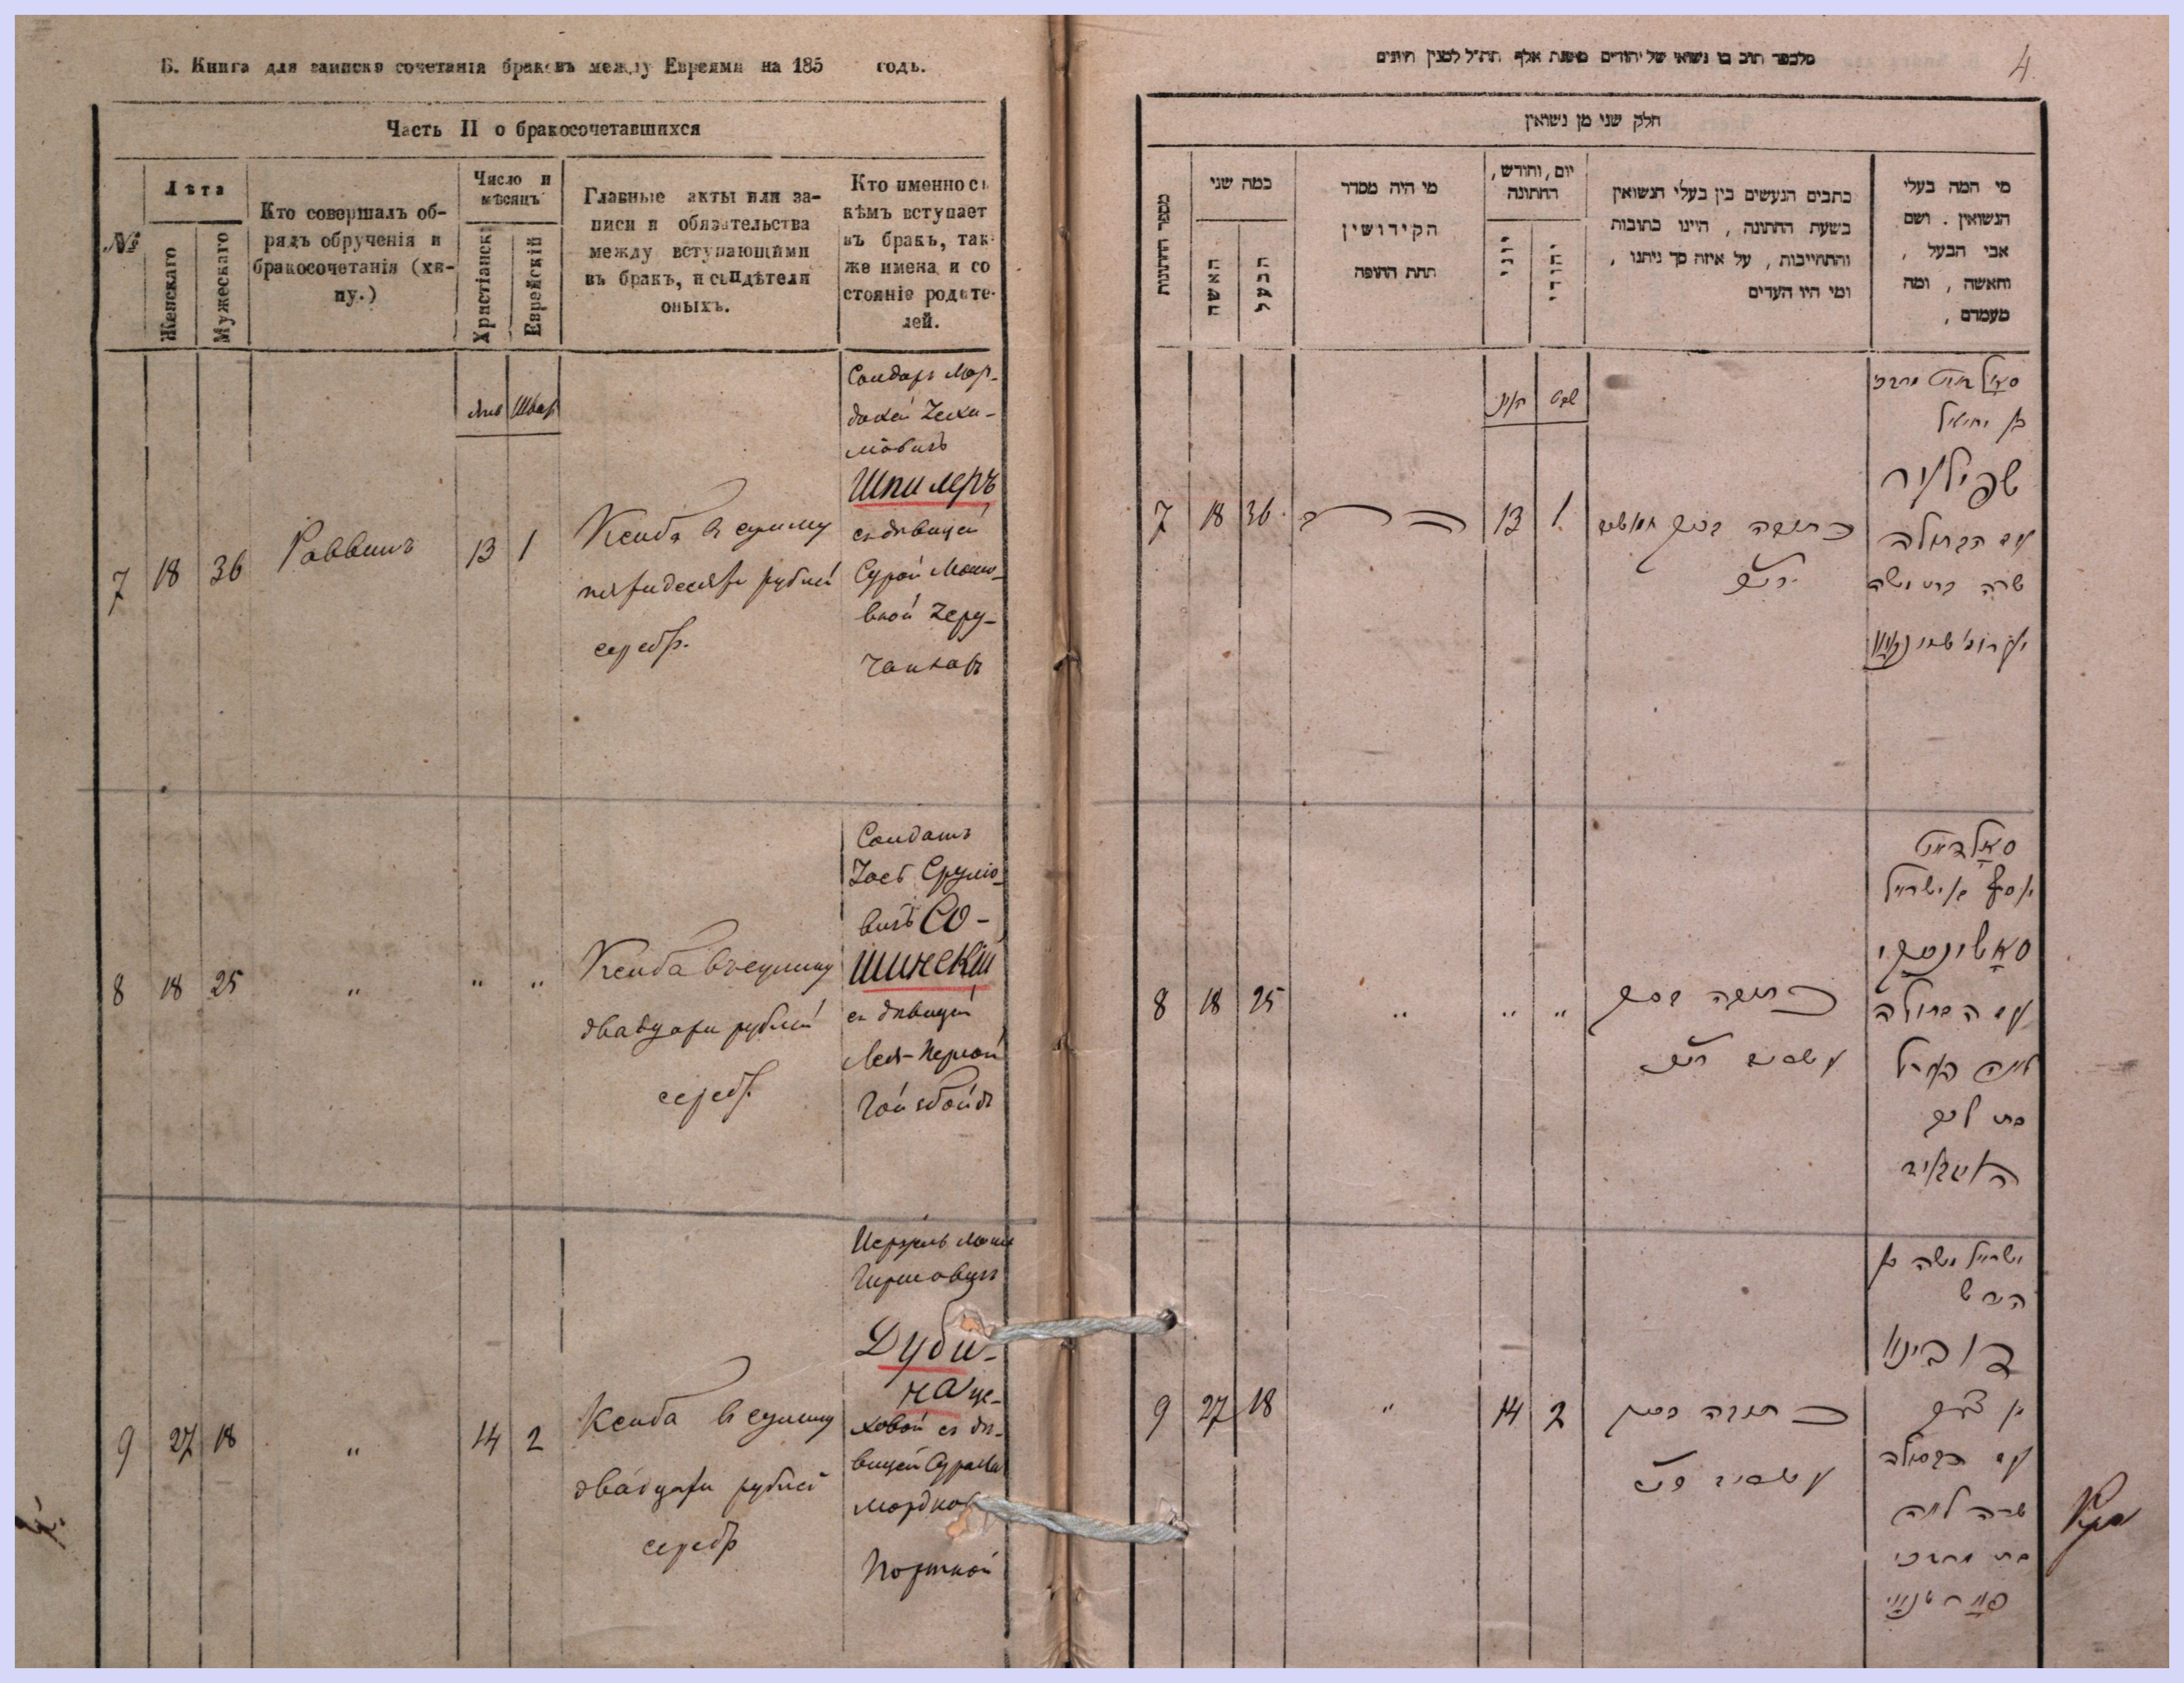 Б. Книга для записки сочетанія браковъ между Евреями на 185 годъ.
Часть II о бракосочетавшихся
№
Лѣта
Женскаго
Мужескаго
Кто совершалъ об-
рядъ обрученія и
бракосочетанія (хи-
пу.)
Число и
мѣсяцъ
Христіанск
Еврейскій
Главные акты или за-
писи и обязательства
между вступающими
въ бракъ, и свидѣтели
оныхъ.
Кто именно съ
кѣмъ вступает
въ бракъ, так-
же имена и со
стояніе родите-
лей.
7
18
36
Раввинъ
Янв
Шват
13
1
Ксиба в сумму
пятидесяти рублей
серебр.
Солдатъ Мор-
духай
Шпилеръ
съ дѣвицей
Сурой Мошко-
вной
8
18
25
"
"
"
Ксиба въ сумму
двадцати рублей
серебр.
Солдатъ
Іосъ Сруліо-
вичъ Со-
шинскій
съ дѣвицей
Лея-Перлой
9
27
18
"
14
2
Ксиба в сумму
двадцати рублей
серебр
Гершовичъ
Дуби-
на це-
ховой съ дѣ-
вицей
Мордков
Портной
4
חלק שני מן נשואין
מספר החתונות
כמה שני
האשה
הבעל
מי היה מסדר
הקידושין
תחת החופה
יום, וחודש,
החתונה
יוני
יהודי
כתבים הנעשים בין בעלי הנשואין
בשעת החתונה, היינו כתובות
והתחייבות, על איזה סך ניתנו,
ומי היו העדים
מי המה בעלי
הנשואין. ושם
אבי הבעל,
והאשה, ומה
מעמדם,
7
18
36
הרב
13
1
כתובה בסך חמשים
סאלדאט מרדכי
בן יחיאל
שפילער
עם הבתולה
שרה בת משה
8
18
25
"
"
"
כתובה בסך
עשרים
סאלדאט
יוסף בן ישראל
סאשינסקי
עם הבתולה
לאה פערל
בת
9
27
18
"
14
2
כתובה בסך
עשרים
ישראל משה בן
הירש
דובינא
עם הבתולה
שרה לאה
בת מרדכי
פארטנאי